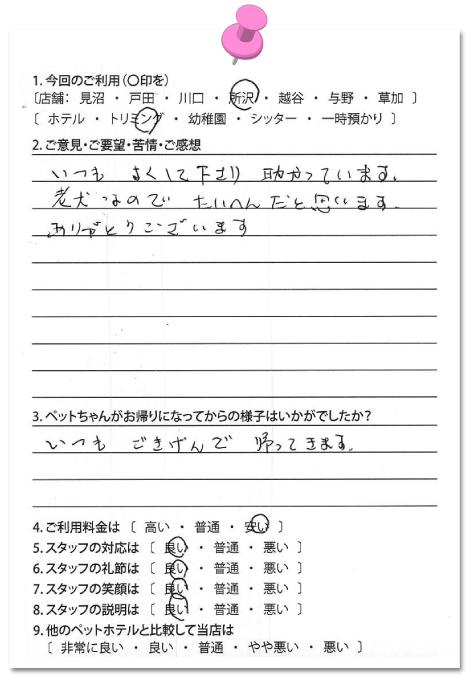 1. 今回のご利用(〇印を)
〔店舗: 見沼 ・ 戸田 ・ 川口 ・ 所沢 ・ 越谷 ・ 与野 ・ 草加 〕
〔 ホテル ・ トリミング ・ 幼稚園 ・ シッター ・ 一時預かり 〕
2. ご意見・ご要望・苦情・ご感想
いつも よくして下さり 助かっています。
老犬なので たいへんだと思います。
ありがとうございます
3. ペットちゃんがお帰りになってからの様子はいかがでしたか?
いつも ごきげんで 帰ってきます。
4. ご利用料金は 〔 高い ・ 普通 ・ 安い 〕
5. スタッフの対応は 〔 良い ・ 普通 ・ 悪い 〕
6. スタッフの礼節は 〔 良い ・ 普通 ・ 悪い 〕
7. スタッフの笑顔は 〔 良い ・ 普通 ・ 悪い 〕
8. スタッフの説明は 〔 良い ・ 普通 ・ 悪い 〕
9. 他のペットホテルと比較して当店は
〔 非常に良い ・ 良い ・ 普通 ・ やや悪い ・ 悪い 〕